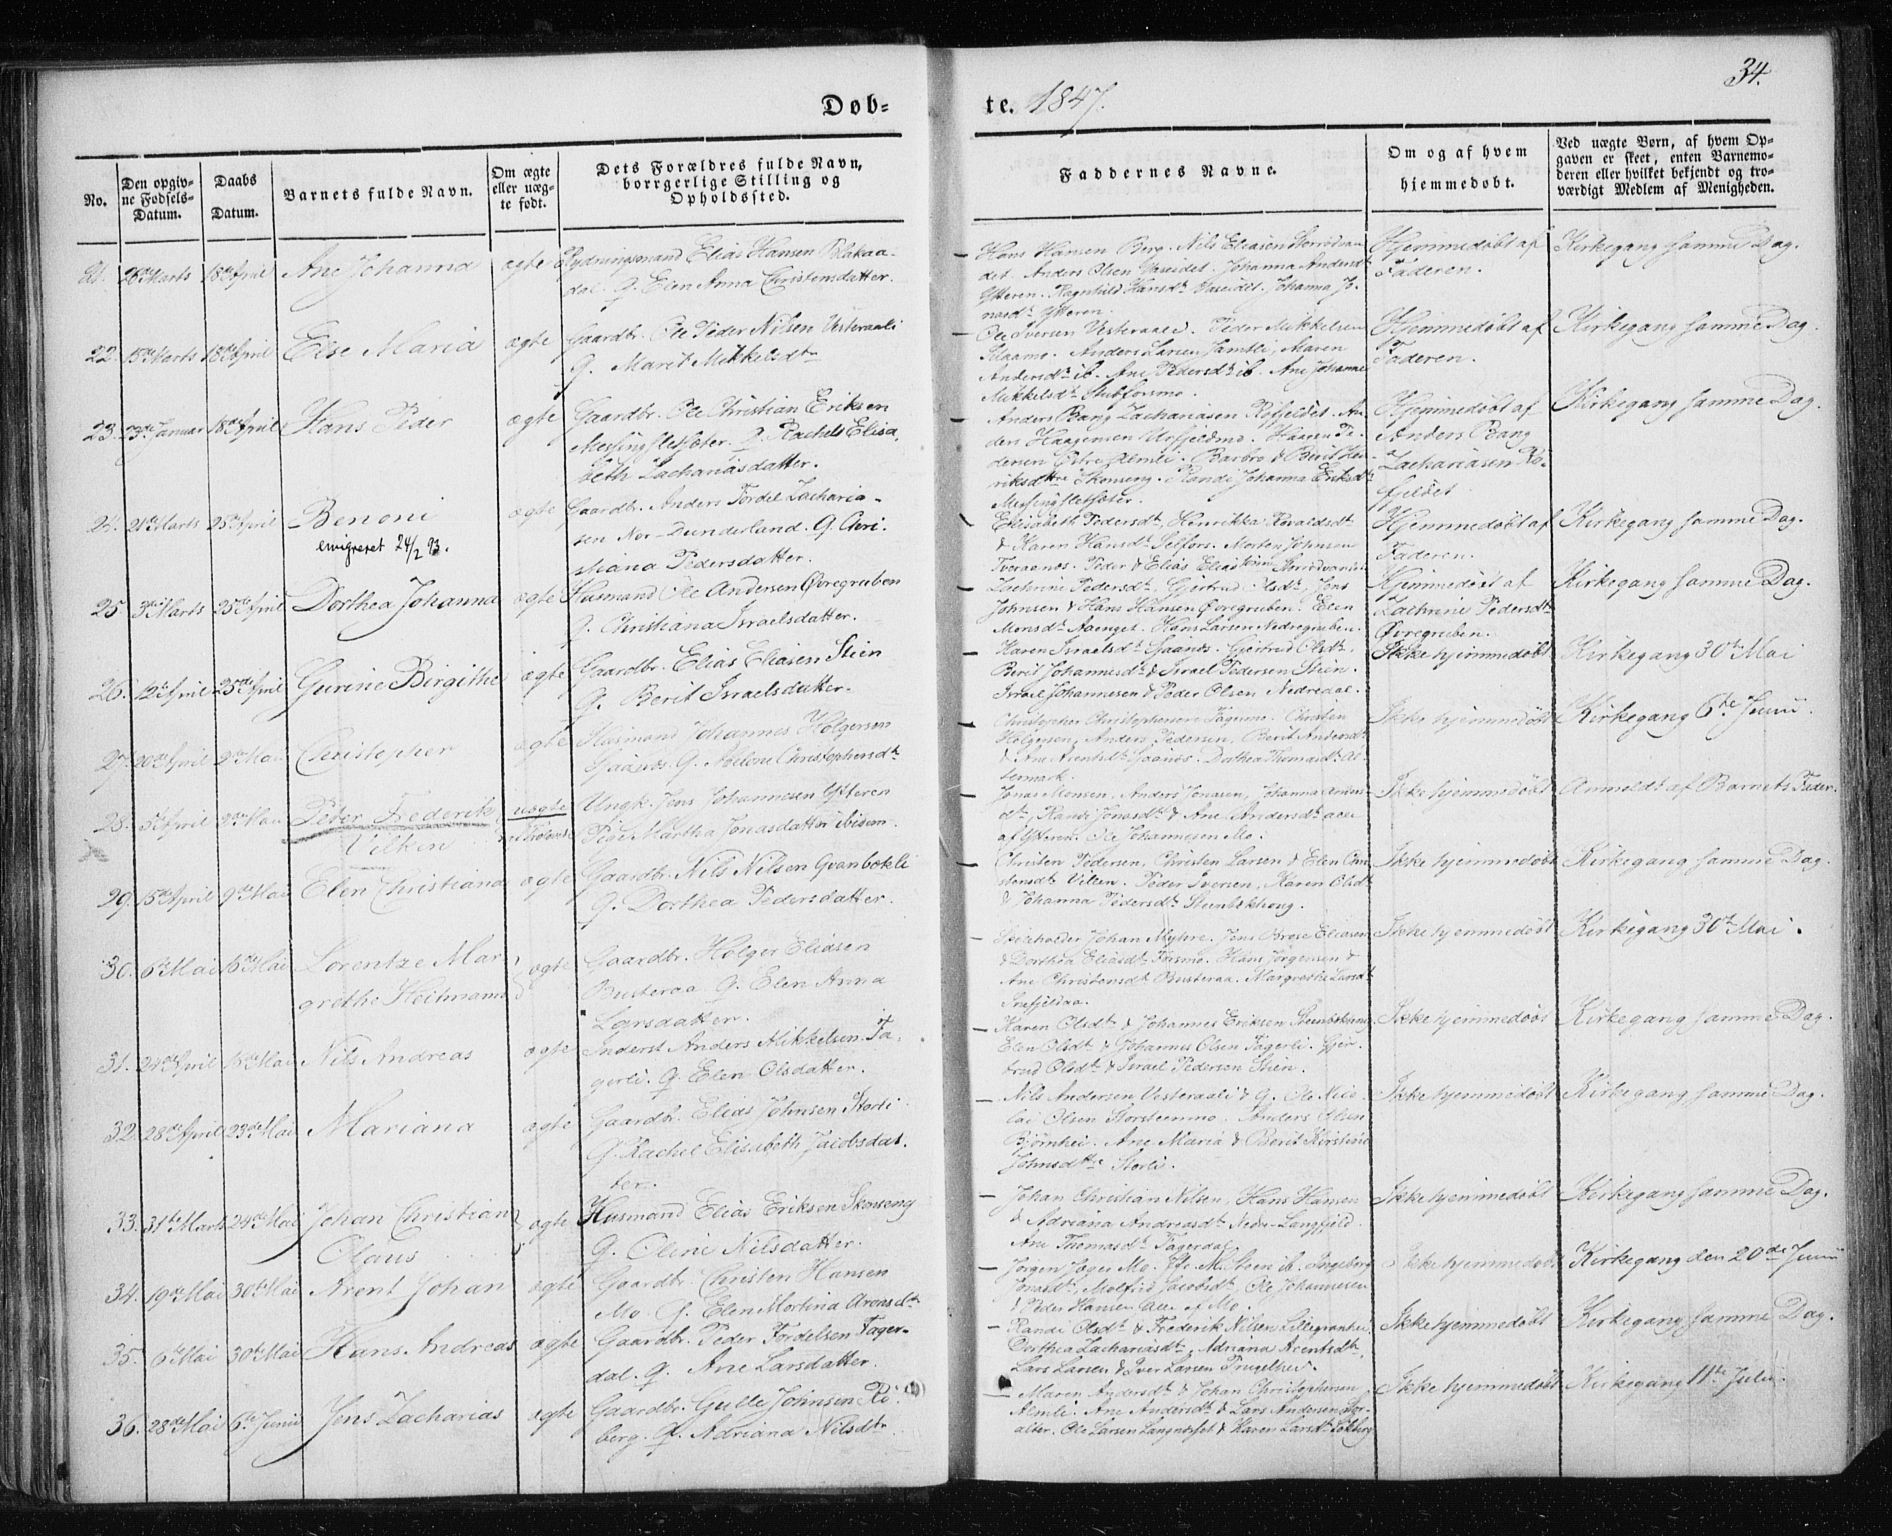 34.
Døb= te. 1847.
No.
Den opgiv-
ne Fødsels-
Datum.
Daabs
Datum.
Barnets fulde Navn.
Om ægte
eller uæg-
te født.
Dets Forældres fulde Navn,
borrgerlige Stilling og
Opholdssted.
Faddernes Navne.
Om og af hvem
hjemmedøbt.
Ved uægte Børn, af hvem Op-
gaven er skeet, enten Barnemo-
deren eller hvilket bekjendt og tro-
værdigt Medlem af Menigheden.
21. 26de Marts 18de April Ane Johanna ægte Rydningsmand Elias Hansen Blakaa-
dal. Q. Elen Anna Christensdatter.
Hans Hansen Berg. Nils Eliasen Storrødvan
det. Anders Olsen Vaseidet. Johanna Andersdt
Ytteren. Ragnhild Hansdt Vaseidet. Johanna Jo-
nasdt Ytteren.
Hjemmedøbt af
Faderen.
Kirkegang samme Dag.
22. 15de Marts 18de April Else Maria ægte Gaardbr. Ole Peder Nilsen Vesteraali
Q. Marit Mikkelsdtr
Ole Iversen Vesteraali. Peder Mikkelsen
Anders Larsen Jamtli, Maren
Andersdt ib. Ane Pedersdt ib. Ane Johanne
Mikkelsdt Stubformo.
Hjemmedøbt af
Faderen.
Kirkegang samme Dag.
23. 23de Januar 18de April Hans Peder ægte Gaardbr. Ole Christian Eriksen
Messingsletsæter. Q. Rachel Elisa,
beth Zachariasdatter.
Anders Bang Zachariasen Røfjeldet. An
ders Haagensen Urfjeldmo. Haagen Pe-
dersen Østre Almli. Barbro & Berit Hen-
riksdttre Skonseng. Randi Johanna Eriksdt
Messingsletsæter.
Hjemmedøbt af
Anders Bang
Zachariasen Rø-
fjeldet
Kirkegang samme Dag.
24. 21de Marts 25de April Benoni
emigreret 24/2 93.
ægte Gaardbr. Anders Tordel Zacharia-
sen Nor-Dunderland. Q. Chri-
stiana Pedersdatter.
Elisabeth Pedersdt, Henrikka
& Karen Hansdt Selfors. Morten Johnsen
Tveraanes. Peder & Elias
Hjemmedøbt af
Faderen.
Kirkegang samme Dag.
25. 3de Marts 25de April Dorthea Johanna ægte Husmand Ole Andersen Øvregruben
Q. Christiana Israelsdatter.
Zachrine Pedersdt, Gjertrud Olsdt, Jens
Johnsen & Hans Hansen Øvregruben. Elen
Monsdt Aaenget. Hans Larsen Nedregruben.
Hjemmedøbt af
Zachrine Pedersdt
Øvregruben.
Kirkegang samme Dag.
26. 12te April 25de April Gurine Birgithe ægte Gaardbr. Elias Eliasen Stien
Q. Berit Israelsdatter.
Karen Israelsdt Gaanæs. Gjertrud Olsdt.
Berit Johannesdt & Israel Pedersen Stien.
Israel Johannesen & Peder Olsen Nedredal.
Ikke hjemmedøbt
Kirkegang 30te Mai
27. 20de April 2den Mai Christopher ægte Husmand Johannes Holgersen
Gaanæs. Q. Abelone Christophersdt
Christopher Christophersen Fagermo. Christen
Holgersen, Anders Pedersen, Berit Andersdt
& Ane Arentsdt Gaanæs. Dorthea Thomasdt Al-
termark.
Ikke hjemmedøbt
Kirkegang 6te Junii.
28. 5te April 2den Mai Peder Frederik
Vilken
uægte
Ungk. Jens Johannesen Ytteren
Pige Martha Jonasdatter ibidem.
Jonas Monsen, Anders Jonasen, Johanna Anders-
dt, Randi Jonasdt & Ane Andersdt alle
af Ytteren. Ole Johannesen Mo.
Ikke hjemmedøbt
Anmeldt af Barnets Fader.
29. 15de April 9de Mai Elen Christiana ægte Gaardbr. Nils Nilsen Qvanbækli
Q. Dorthea Pedersdatter.
Christen Pedersen, Christen Larsen & Elen Chri
stensdt Villen. Peder Iversen, Karen Olsdt
& Johanna Pedersdt Steenbækhaug.
Ikke hjemmedøbt
Kirkegang samme Dag.
30. 6te Mai 16de Mai Lorentze Mar-
grethe Heitmann
ægte Gaardbr. Holger Eliasen
Busteraa. Q. Elen Anna
Larsdatter.
Johan Myhre. Jens Brose Eliasen
& Dorthea Eliasdt Forsmo. Hans Jørgensen &
Ane Christensdt Busteraa. Margrethe Larsdt
Snefjeldaa.
Ikke hjemmedøbt
Kirkegang 30te Mai.
31. 24de April 16de Mai Nils Andreas ægte Inderst Anders Mikkelsen Fa-
gerli. Q. Elen Olsdatter.
Karen Olsdt & Johannes Eriksen Steenbækhaug
Elen Olsdt & Johannes Olsen Fagerli. Gjer-
trud Olsdt & Israel Pedersen Stien.
Ikke hjemmedøbt
Kirkegang samme Dag.
32. 28de April 23de Mai Mariana ægte Gaardbr. Elias Johnsen Storli
Q. Rachel Elisabeth Jacobsdat-
ter.
Nils Andersen Vesteraali & Q. Ole Nico
lai Olsen Storsteenmo. Anders Olsen
Bjørnhei. Ane Maria & Berit Kirstine
Johnsdttre Storli.
Ikke hjemmedøbt
Kirkegang samme Dag.
33. 31te Marts 24de Mai Johan Christian
Olaus
ægte Husmand Elias Eriksen Skonseng
Q. Oline Nilsdatter.
Johan Christian Nilsen, Hans Hansen
& Adriana Andreasdt Nedr. Langfjeld.
Ane Thomasdt Fagerdal.
Ikke hjemmedøbt
Kirkegang samme Dag.
34. 19de Mai 30te Mai Arent Johan ægte Gaardbr. Christen Hansen
Mo. Q. Elen Martina Aronsdt
Jørgen Jæger Mo. Ole M. Steen ib. Ingeborg
Jonasdt, Molfrid Jacobsdt, Ole Johannesen
& Peder Hansen alle af Mo.
Ikke hjemmedøbt
Kirkegang den 20de Junii
35. 6te Mai 30te Mai Hans Andreas ægte Gaardbr. Peder Tordelsen Fager-
dal. Q. Ane Larsdatter.
Randi Olsdt & Frederik Nilsen
Dorthea Zachariasdt, Adriana Arentsdt,
Lars Larsen & Iver Larsen
Ikke hjemmedøbt
Kirkegang samme Dag.
36. 28de Mai 6te Junii Jens Zacharias ægte Gaardbr. Gulle Johnsen Rø-
berg. Q. Adriana Nilsdtr
Maren Andersdt & Johan Christophersen
Almli. Ane Andersdt & Lars Andersen
Ole Larsen Langnæset & Karen Larsdt
Ikke hjemmedøbt
Kirkegang 11te Julii.